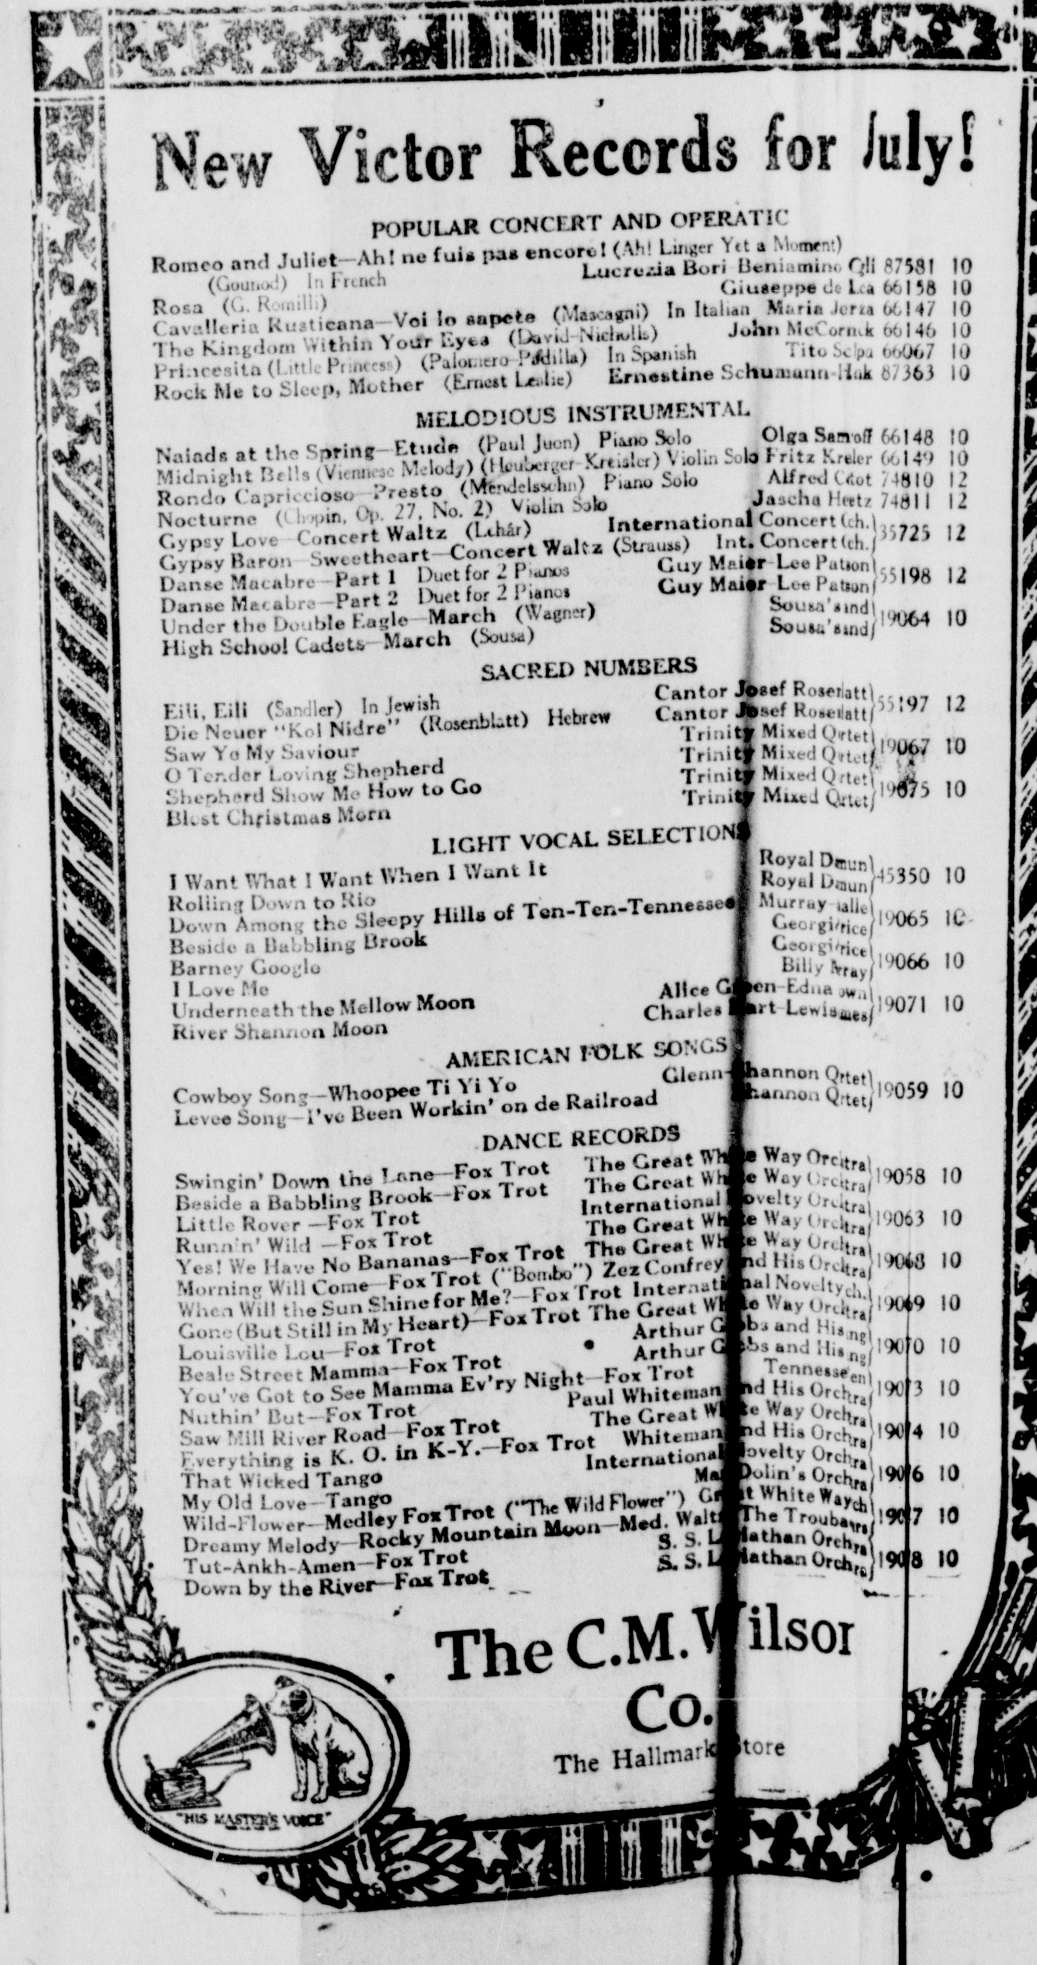 New Victor Records for July!
POPULAR CONCERT AND OPERATIC
Romeo and Juliet—Ah! ne fuis pas encore! (Ah! Linger Yet a Moment)
(Gounod) In French Lucrezia Bori-Beniamino 87581 10
Rosa (G. Romilli) Giuseppe de 66158 10
Cavalleria Rusticana—Voi lo sapete (Mascagni) In Italian Maria 66147 10
The Kingdom Within Your Eyes (David-Nicholls) John 66146 10
Princesita (Little Princess) (Palomero-Padilla) In Spanish Tito 66067 10
Rock Me to Sleep, Mother (Ernest Leslie) Ernestine 87363 10
MELODIOUS INSTRUMENTAL
Naiads at the Spring—Etude (Paul Juon) Piano Solo Olga 66148 10
Midnight Bells (Viennese Melody) (Heuberger-Kreisler) Violin Solo Fritz 66149 10
Rondo Capriccioso—Presto (Mendelssohn) Piano Solo Alfred 74810 12
Nocturne (Chopin, Op. 27, No. 2) Violin Solo Jascha 74811 12
Gypsy Love—Concert Waltz (Lehár) International Concert 35725 12
Gypsy Baron—Sweetheart—Concert Waltz (Strauss) Int. Concert
Danse Macabre—Part 1 Duet for 2 Pianos Guy Maier-Lee 55198 12
Danse Macabre—Part 2 Duet for 2 Pianos Guy Maier-Lee
Under the Double Eagle—March (Wagner) Sousa's 19064 10
High School Cadets—March (Sousa) Sousa's
SACRED NUMBERS
Eili, Eili (Sandler) In Jewish Cantor Josef 55197 12
Die Neuer "Kol Nidre" (Rosenblatt) Hebrew Cantor Josef
Saw Ye My Saviour Trinity Mixed 19067 10
O Tender Loving Shepherd Trinity Mixed
Shepherd Show Me How to Go Trinity Mixed 19075 10
Blest Christmas Morn Trinity Mixed
LIGHT VOCAL SELECTIONS
I Want What I Want When I Want It Royal 45350 10
Rolling Down to Rio Royal
Down Among the Sleepy Hills of Ten-Ten-Tennessee Murray 19065 10
Beside a Babbling Brook
Barney Google 19066 10
I Love Me Billy
Underneath the Mellow Moon Alice 19071 10
River Shannon Moon Charles
AMERICAN FOLK SONGS
Cowboy Song—Whoopee Ti Yi Yo 19059 10
Levee Song—I've Been Workin' on de Railroad
DANCE RECORDS
Swingin' Down the Lane—Fox Trot The Great White Way 19058 10
Beside a Babbling Brook—Fox Trot The Great White Way
Little Rover—Fox Trot International 19063 10
Runnin' Wild—Fox Trot The Great White Way
Yes! We Have No Bananas—Fox Trot The Great White Way 19068 10
Morning Will Come—Fox Trot ("Bombo") Zez Confrey and His
When Will the Sun Shine for Me?—Fox Trot International 19069 10
Gone (But Still in My Heart)—Fox Trot The Great White Way
Louisville Lou—Fox Trot Arthur 10
Beale Street Mamma—Fox Trot Arthur
You've Got to See Mamma Ev'ry Night—Fox Trot 10
Nuthin' But—Fox Trot Paul Whiteman and His
Saw Mill River Road—Fox Trot The Great White Way 10
Everything is K. O. in K-Y.—Fox Trot Whiteman and His
That Wicked Tango International 10
My Old Love—Tango
Wild-Flower—Medley Fox Trot ("The Wild Flower") Great White Way 10
Dreamy Melody—Rocky Mountain Moon—Med. Waltz The
Tut-Ankh-Amen—Fox Trot S. S. 10
Down by the River—Fox Trot S. S.
The C.M. Wilson
Co.
The Hallmark Store
"HIS MASTER'S VOICE"